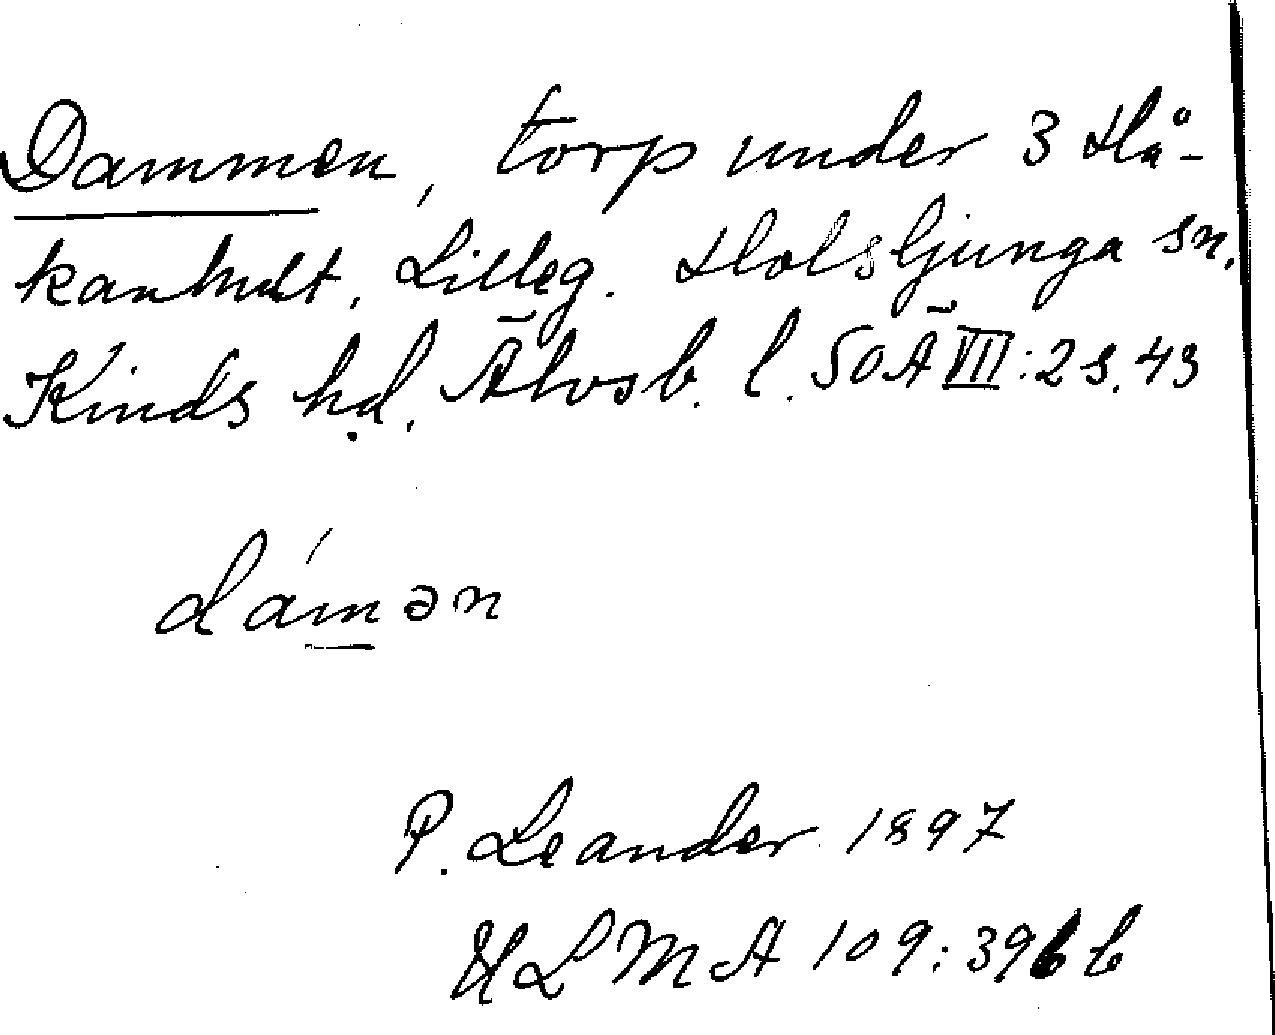 Dammen, torp under 3 Hå-
kanhult, Lilleg. Holsljunga sn.
Kinds hd. Älvsb. l. SOÄ VII:2 s. 43
dámən
P. Leander 1897
ULMA 109:396 b